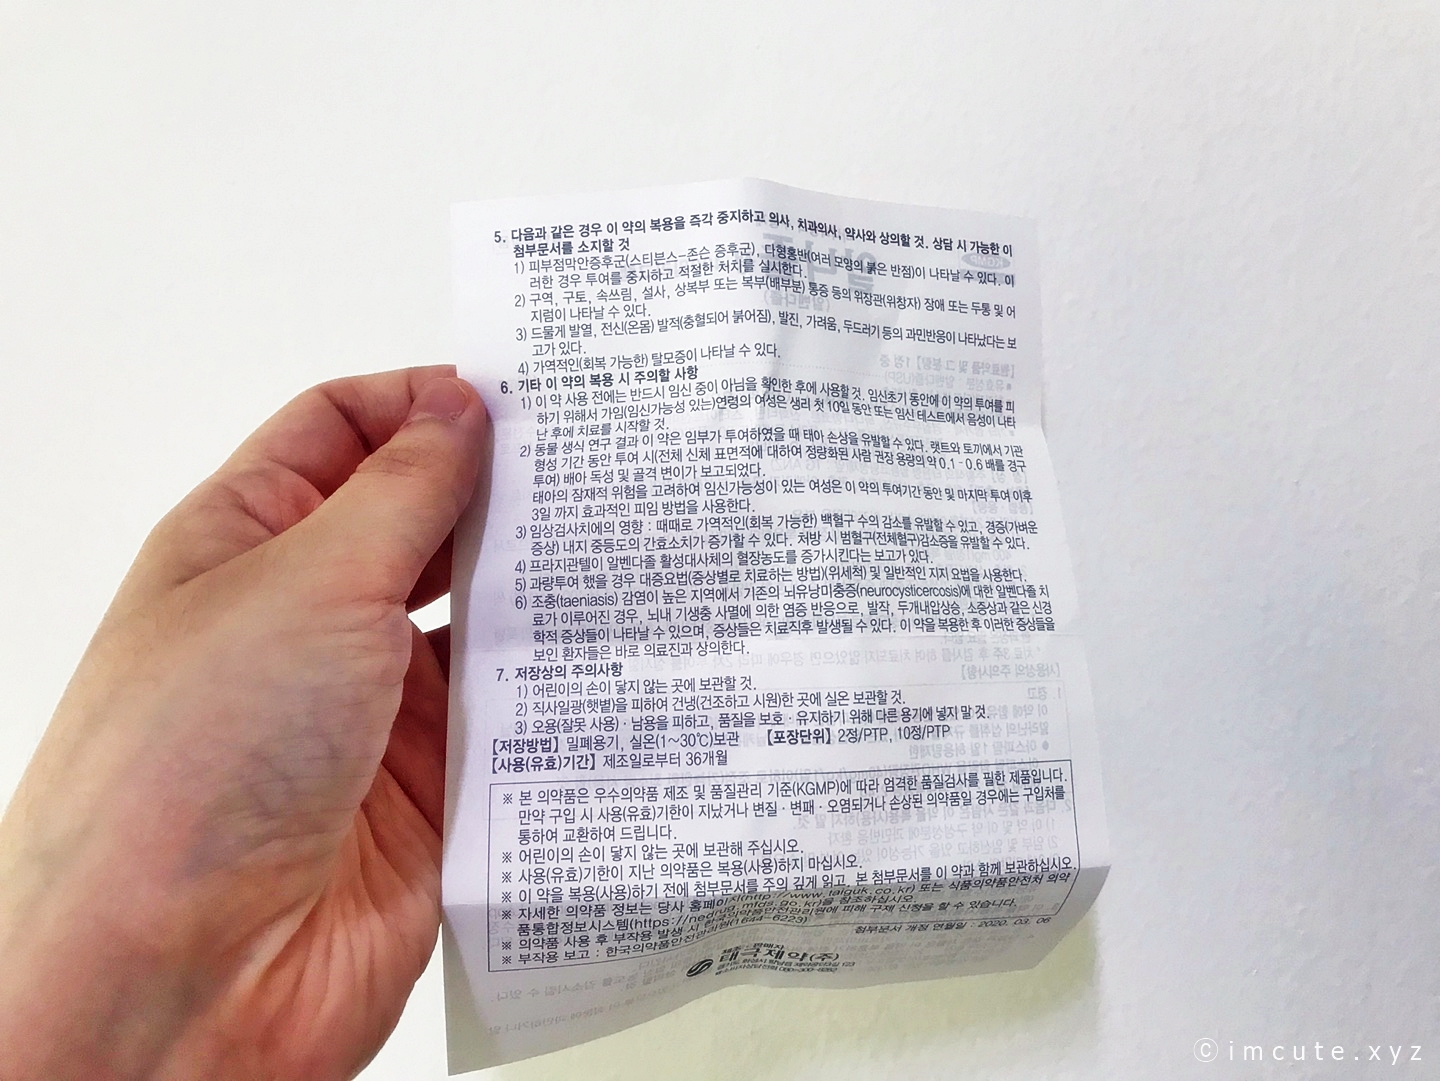 5. 다음과 같은 경우 이 약의 복용을 즉각 중지하고 의사, 치과의사, 약사와 상의할 것. 상담 시 가능한 이
첨부문서를 소지할 것
1) 피부점막안증후군(스티븐스-존슨 증후군), 다형홍반(여러 모양의 붉은 반점)이 나타날 수 있다. 이
러한 경우 투여를 중지하고 적절한 처치를 실시한다.
2) 구역, 구토, 속쓰림, 설사, 상복부 또는 복부(배부분) 통증 등의 위장관(위창자) 장애 또는 두통 및 어
지럼이 나타날 수 있다.
3) 드물게 발열, 전신(온몸) 발적(충혈되어 붉어짐), 발진, 가려움, 두드러기 등의 과민반응이 나타났다는 보
고가 있다.
4) 가역적인(회복 가능한) 탈모증이 나타날 수 있다.
6. 기타 이 약의 복용 시 주의할 사항
1) 이 약 사용 전에는 반드시 임신 중이 아님을 확인한 후에 사용할 것. 임신초기 동안에 이 약의 투여를 피
하기 위해서 가임(임신가능성 있는)연령의 여성은 생리 첫 10일 동안 또는 임신 테스트에서 음성이 나타
난 후에 치료를 시작할 것.
2) 동물 생식 연구 결과 이 약은 임부가 투여하였을 때 태아 손상을 유발할 수 있다. 랫트와 토끼에서 기관
형성 기간 동안 투여 시(전체 신체 표면적에 대하여 정량화된 사람 권장 용량의 약 0.1 - 0.6 배를 경구
투여) 배아 독성 및 골격 변이가 보고되었다.
태아의 잠재적 위험을 고려하여 임신가능성이 있는 여성은 이 약의 투여기간 동안 및 마지막 투여 이후
3일 까지 효과적인 피임 방법을 사용한다.
3) 임상검사치에의 영향 : 때때로 가역적인(회복 가능한) 백혈구 수의 감소를 유발할 수 있고, 경증(가벼운
증상) 내지 중등도의 간효소치가 증가할 수 있다. 처방 시 범혈구(전체혈구)감소증을 유발할 수 있다.
4) 프라지콴텔이 알벤다졸 활성대사체의 혈장농도를 증가시킨다는 보고가 있다.
5) 과량투여 했을 경우 대증요법(증상별로 치료하는 방법)(위세척) 및 일반적인 지지 요법을 사용한다.
6) 조충(taeniasis) 감염이 높은 지역에서 기존의 뇌유낭미충증(neurocysticercosis)에 대한 알벤다졸 치
료가 이루어진 경우, 뇌내 기생충 사멸에 의한 염증 반응으로, 발작, 두개내압상승, 소증상과 같은 신경
학적 증상들이 나타날 수 있으며, 증상들은 치료직후 발생될 수 있다. 이 약을 복용한 후 이러한 증상들을
보인 환자들은 바로 의료진과 상의한다.
7. 저장상의 주의사항
1) 어린이의 손이 닿지 않는 곳에 보관할 것.
2) 직사일광(햇볕)을 피하여 건냉(건조하고 시원)한 곳에 실온 보관할 것.
3) 오용(잘못 사용)·남용을 피하고, 품질을 보호·유지하기 위해 다른 용기에 넣지 말 것.
【저장방법】 밀폐용기, 실온(1~30℃)보관 【포장단위】 2정/PTP, 10정/PTP
【사용(유효)기간】 제조일로부터 36개월
※ 본 의약품은 우수의약품 제조 및 품질관리 기준(KGMP)에 따라 엄격한 품질검사를 필한 제품입니다.
만약 구입 시 사용(유효)기한이 지났거나 변질·변패·오염되거나 손상된 의약품일 경우에는 구입처를
통하여 교환하여 드립니다.
※ 어린이의 손이 닿지 않는 곳에 보관해 주십시오.
※ 사용(유효)기한이 지난 의약품은 복용(사용)하지 마십시오.
※ 이 약을 복용(사용)하기 전에 첨부문서를 주의 깊게 읽고, 본 첨부문서를 이 약과 함께 보관하십시오.
※ 자세한 의약품 정보는 당사 홈페이지(http://www.taiguk.co.kr) 또는 식품의약품안전처 의약
품통합정보시스템(https://nedrug.mfds.go.kr)을 참조하십시오.
※ 의약품 사용 후 부작용 발생 시 한국의약품안전관리원에 피해 구제 신청을 할 수 있습니다.
※ 부작용 보고 : 한국의약품안전관리원(1644-6223)
첨부문서 개정 연월일 : 2020. 03. 06
제조·판매자
태극제약(주)
ⓒimcute.xyz